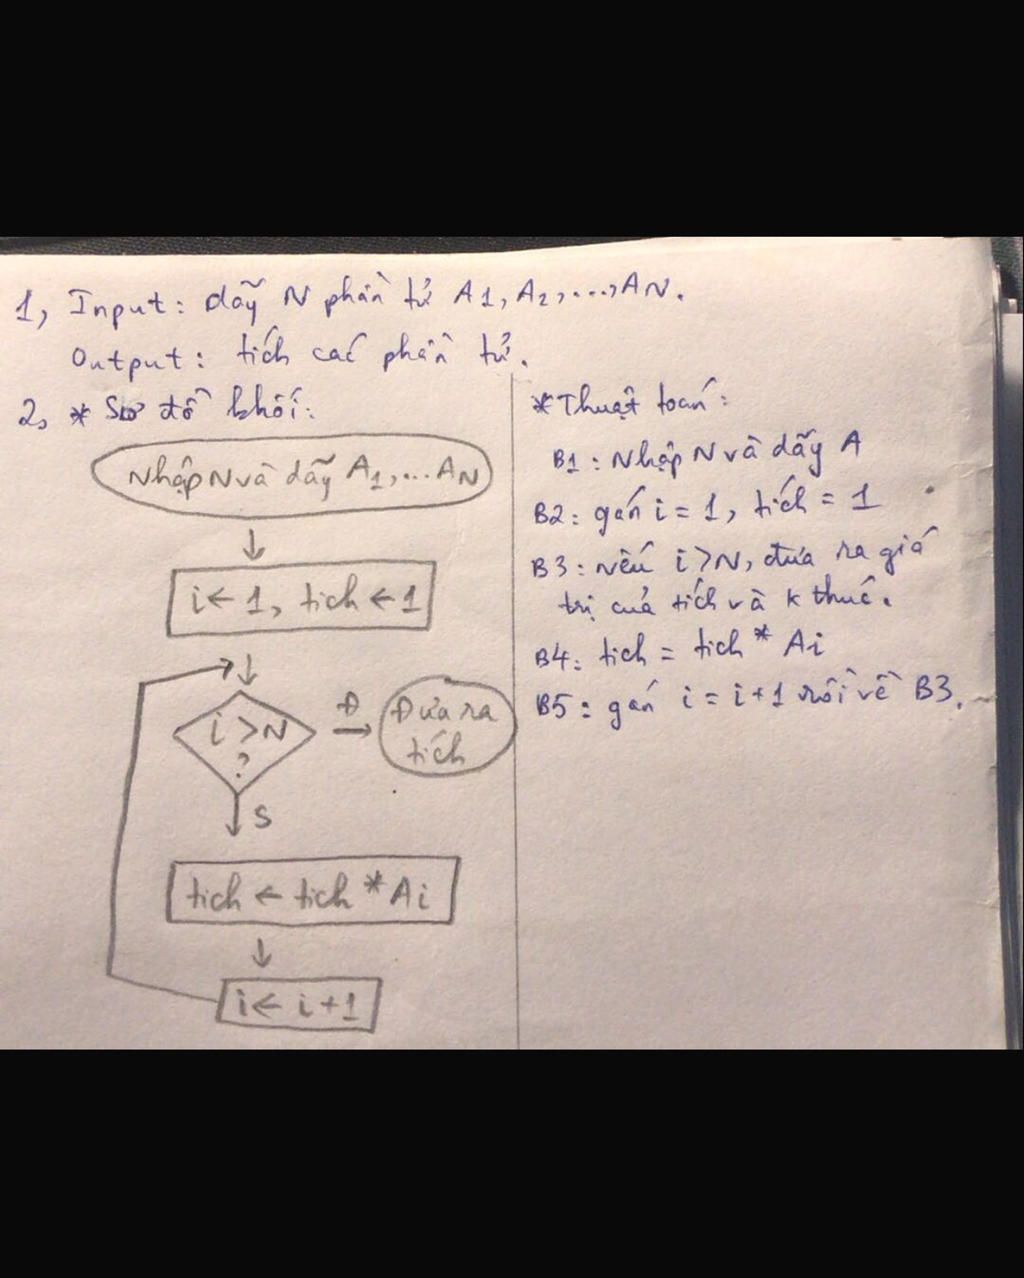 1, Input: dãy N phần tử A1, A2, ..., AN.
Output: tích các phần tử.
2, * Sơ đồ khối:
Nhập N và dãy A1, ... AN
i ← 1, tich ← 1
i > N
?
Đ
Đưa ra
tích
S
tich ← tich * Ai
i ← i + 1
* Thuật toán:
B1: Nhập N và dãy A
B2: gán i = 1, tích = 1
B3: nếu i > N, đưa ra giá
trị của tích và k thúc.
B4: tich = tich * Ai
B5: gán i = i + 1 rồi về B3.